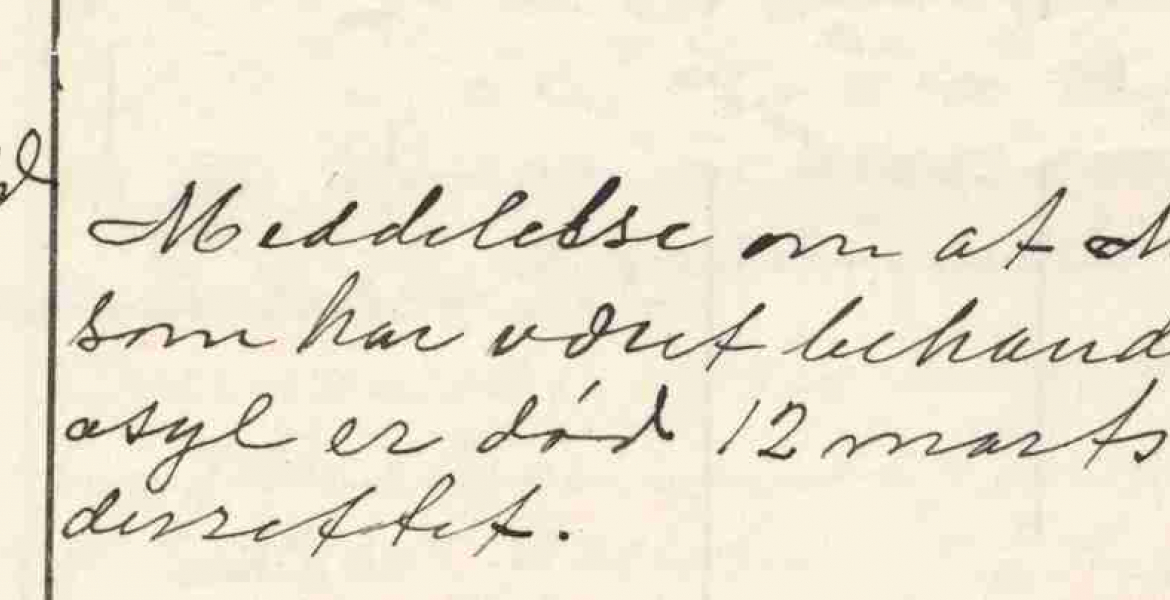 Meddelelse om at M
som har været behand
asyl er død 12 marts
derrettet.